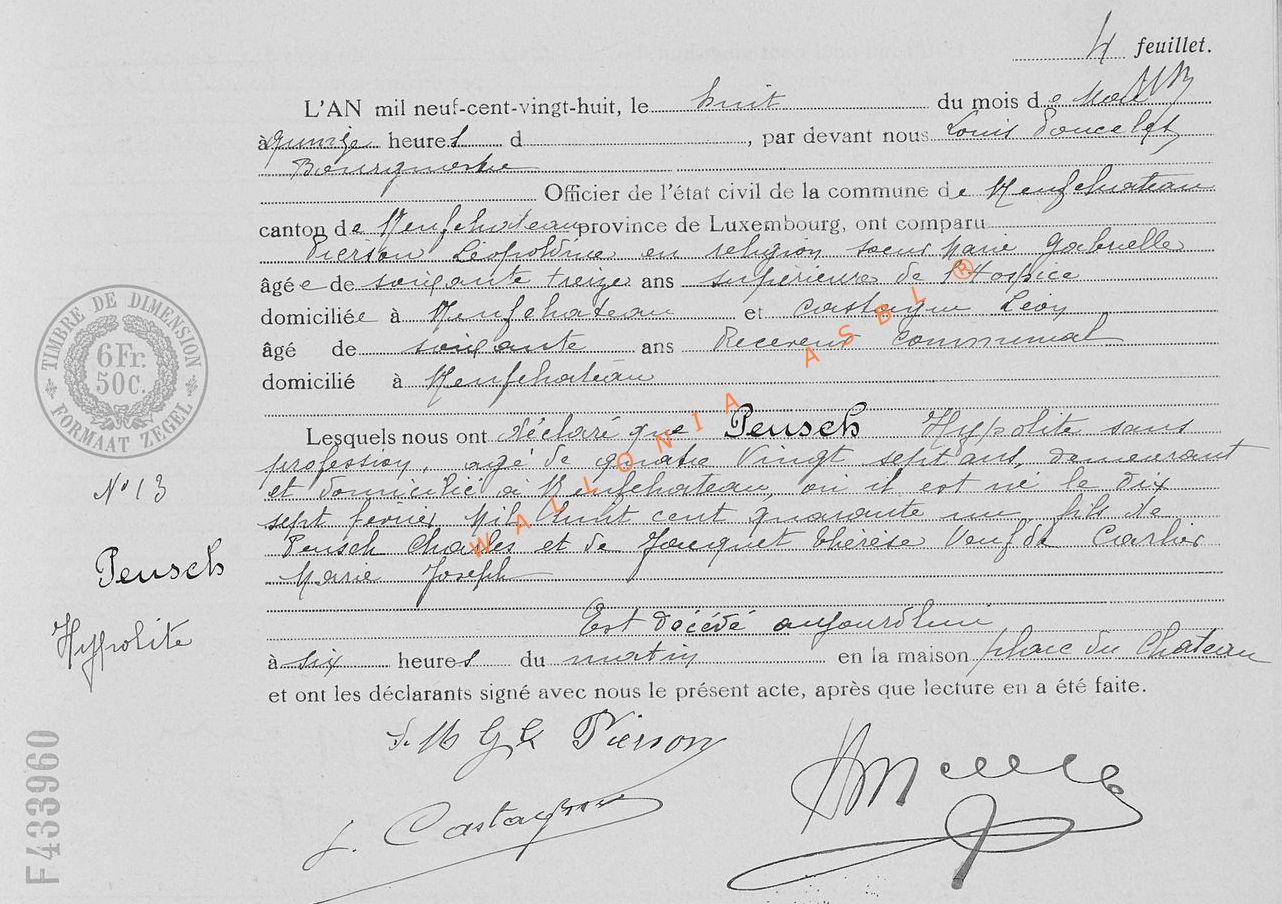 4 feuillet.
L'AN mil neuf-cent-vingt-huit, le huit du mois de Mai
à quinze heures d , par devant nous Louis Poncelet
Bourgmestre
Officier de l'état civil de la commune de Neufchateau
canton de Neufchateau province de Luxembourg, ont comparu
Pierson Léopoldine en religion soeur Marie Gabrielle
âgée de soixante treize ans supérieure de l'Hospice
domiciliée à Neufchateau et Castagne Léon
âgé de soixante ans Receveur Communal
domicilié à Neufchateau
Lesquels nous ont déclaré que Peusch Hypolite sans
profession, agé de quatre vingt sept ans, demeurant
et domicilié à Neufchateau, ou il est né le dix
sept fevrier Mil huit cent quarante un, fils de
Peusch Charles et de Jacquet Thérèse Veuf de Carlier
Marie Joseph
Est décédé aujourd'hui
à six heures du matin en la maison place du Chateau
et ont les déclarants signé avec nous le présent acte, après que lecture en a été faite.
S. M Gle Pierson
L. Castagne
TIMBRE DE DIMENSION
6Fr.
50C.
FORMAAT ZEGEL
N° 13
Peusch
Hyppolite
F433960
WALLONIA ASBL ®